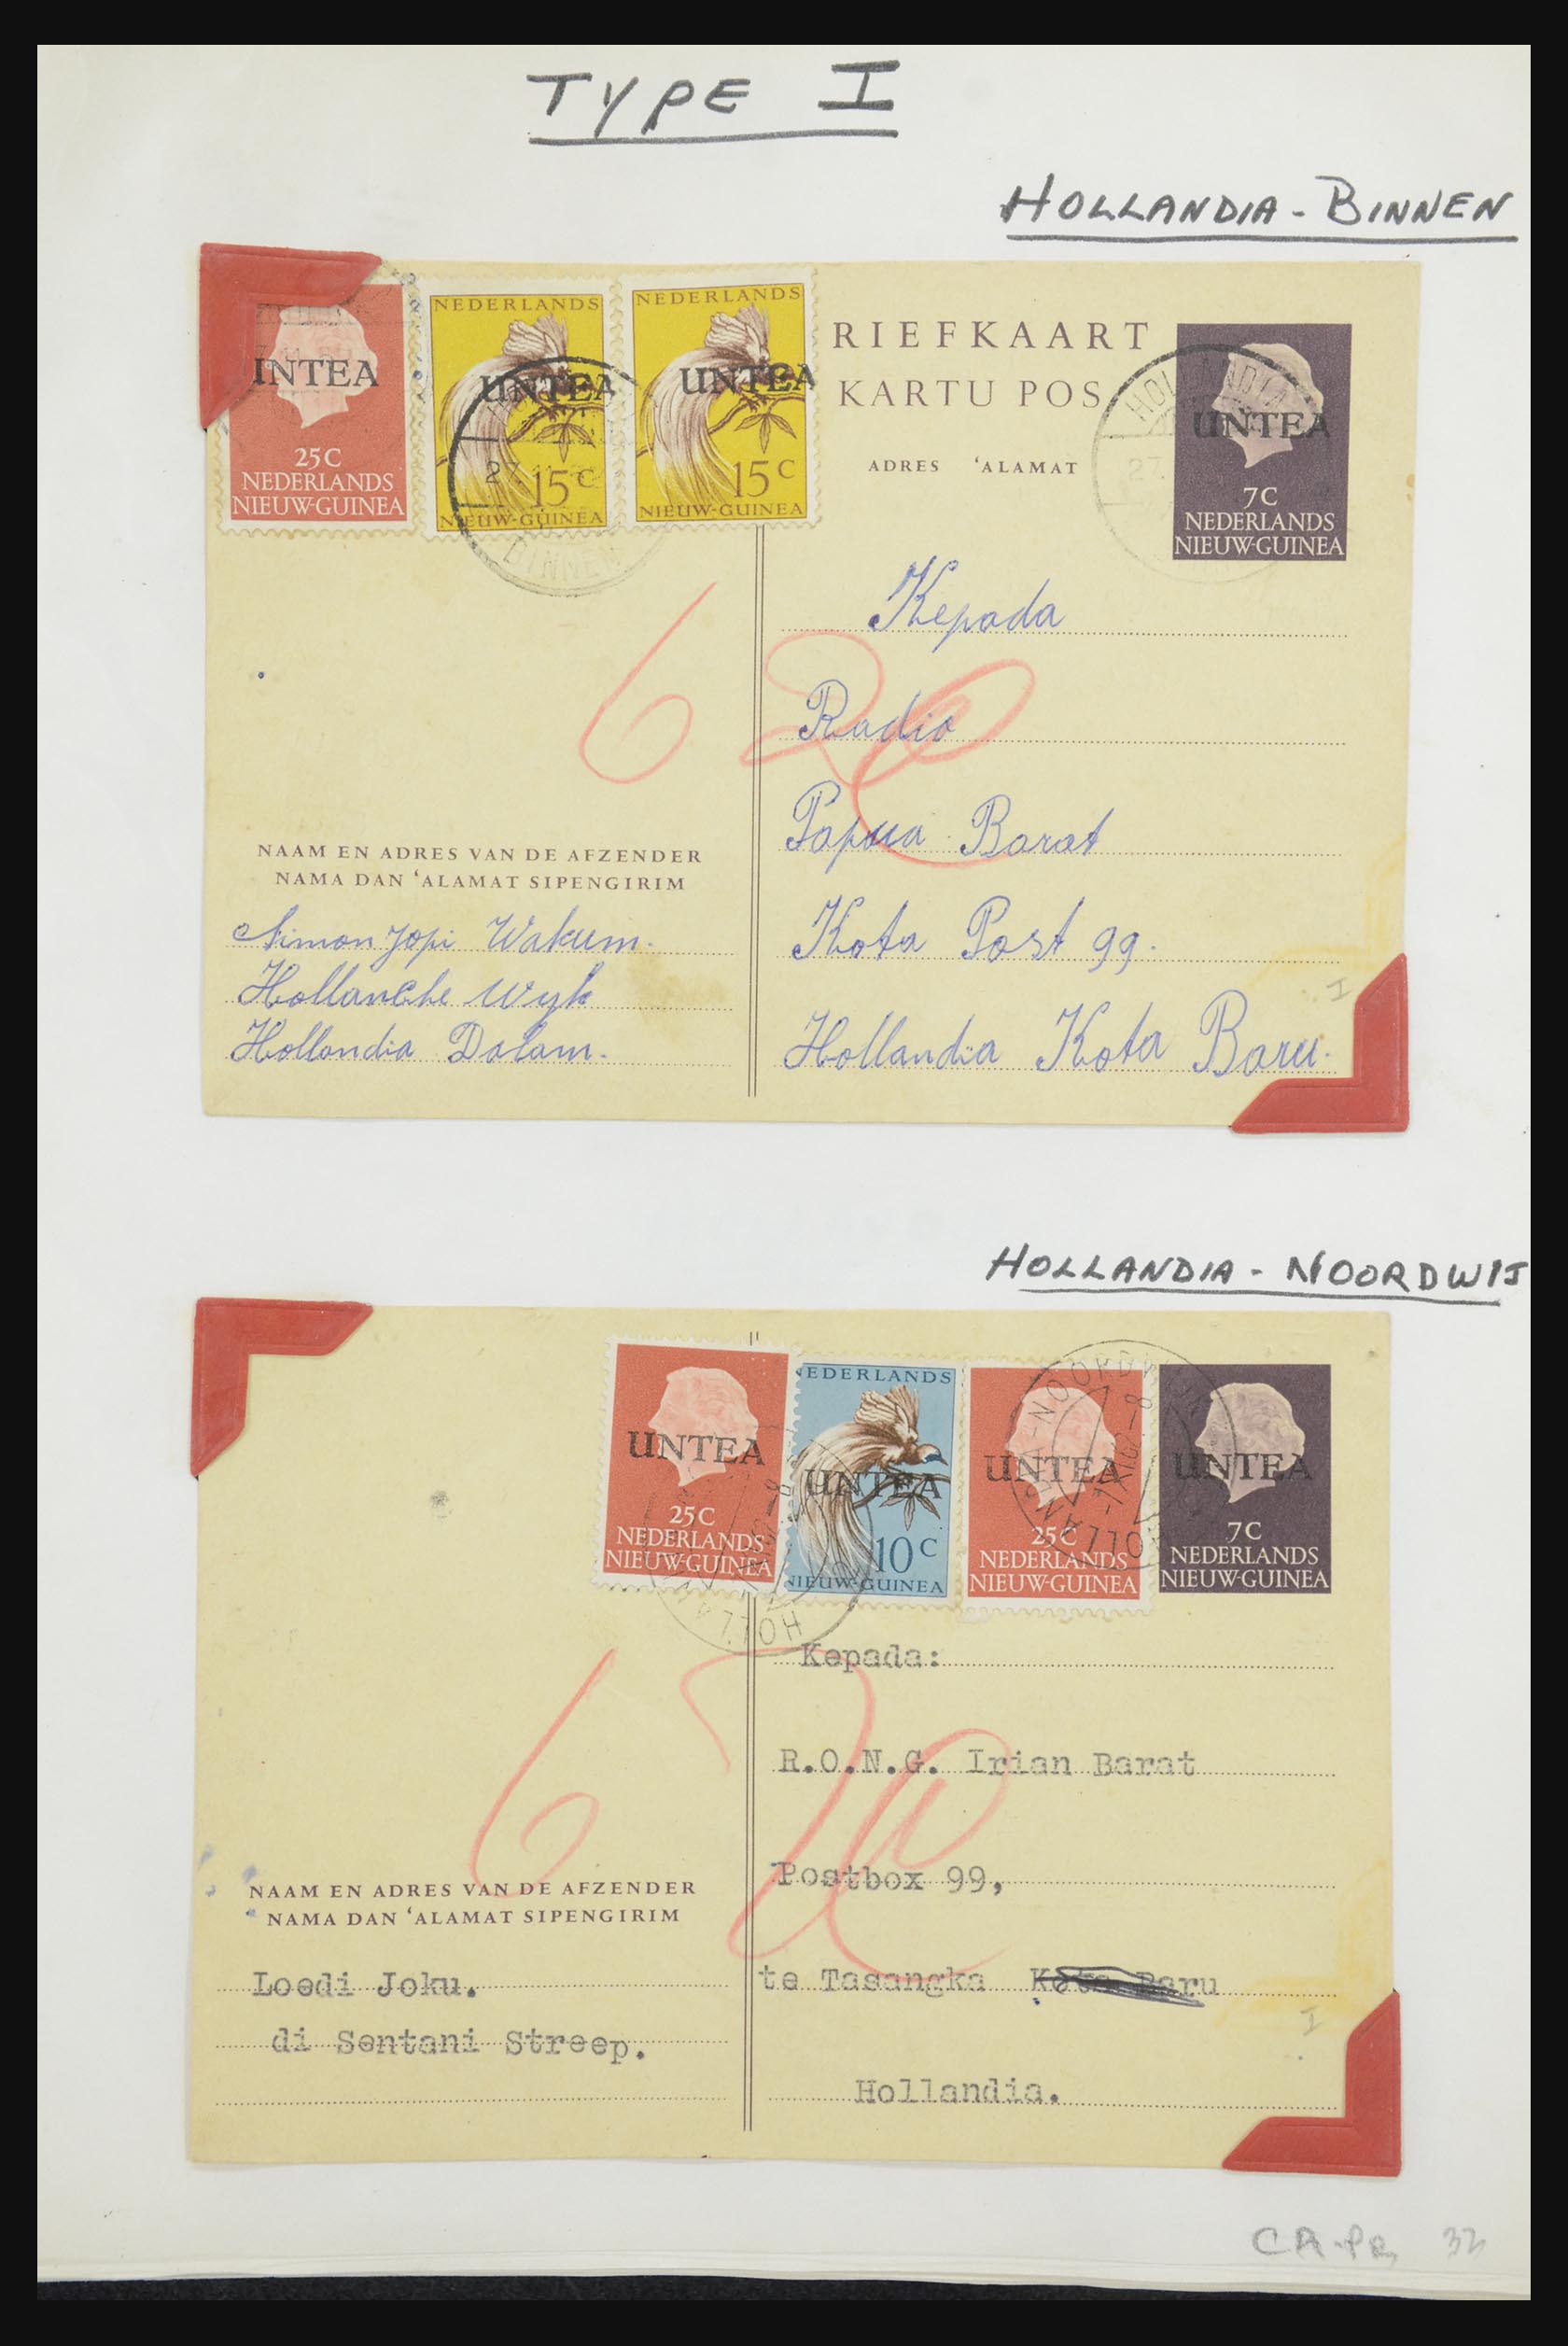 TYPE I
HOLLANDIA - BINNEN
INTEA
25C
NEDERLANDS
NIEUW-GUINEA
NEDERLANDS
UNTEA
15C
NIEUW-GUINEA
NEDERLANDS
UNTEA
15C
NIEUW-GUINEA
27
BINNEN
RIEFKAART
KARTU POS
ADRES 'ALAMAT
HOLLANDIA
27
UNTEA
7C
NEDERLANDS
NIEUW-GUINEA
6 20
Kepada
Radio
Papua Barat
Kota Post 99.
Hollandia Kota Baru.
NAAM EN ADRES VAN DE AFZENDER
NAMA DAN 'ALAMAT SIPENGIRIM
Simon Jopi Wakum.
Hollanche Wyk
Hollandia Dalam.
I
HOLLANDIA - NOORDWIJ
UNTEA
25C
NEDERLANDS
NIEUW-GUINEA
NEDERLANDS
UNTEA
10C
NIEUW-GUINEA
UNTEA
25C
NEDERLANDS
NIEUW-GUINEA
UNTEA
7C
NEDERLANDS
NIEUW-GUINEA
Kepada:
R.O.N.G. Irian Barat
Postbox 99,
te Tasangka Kota Baru
Hollandia.
6
NAAM EN ADRES VAN DE AFZENDER
NAMA DAN 'ALAMAT SIPENGIRIM
Loedi Joku.
di Sentani Streep.
I
32